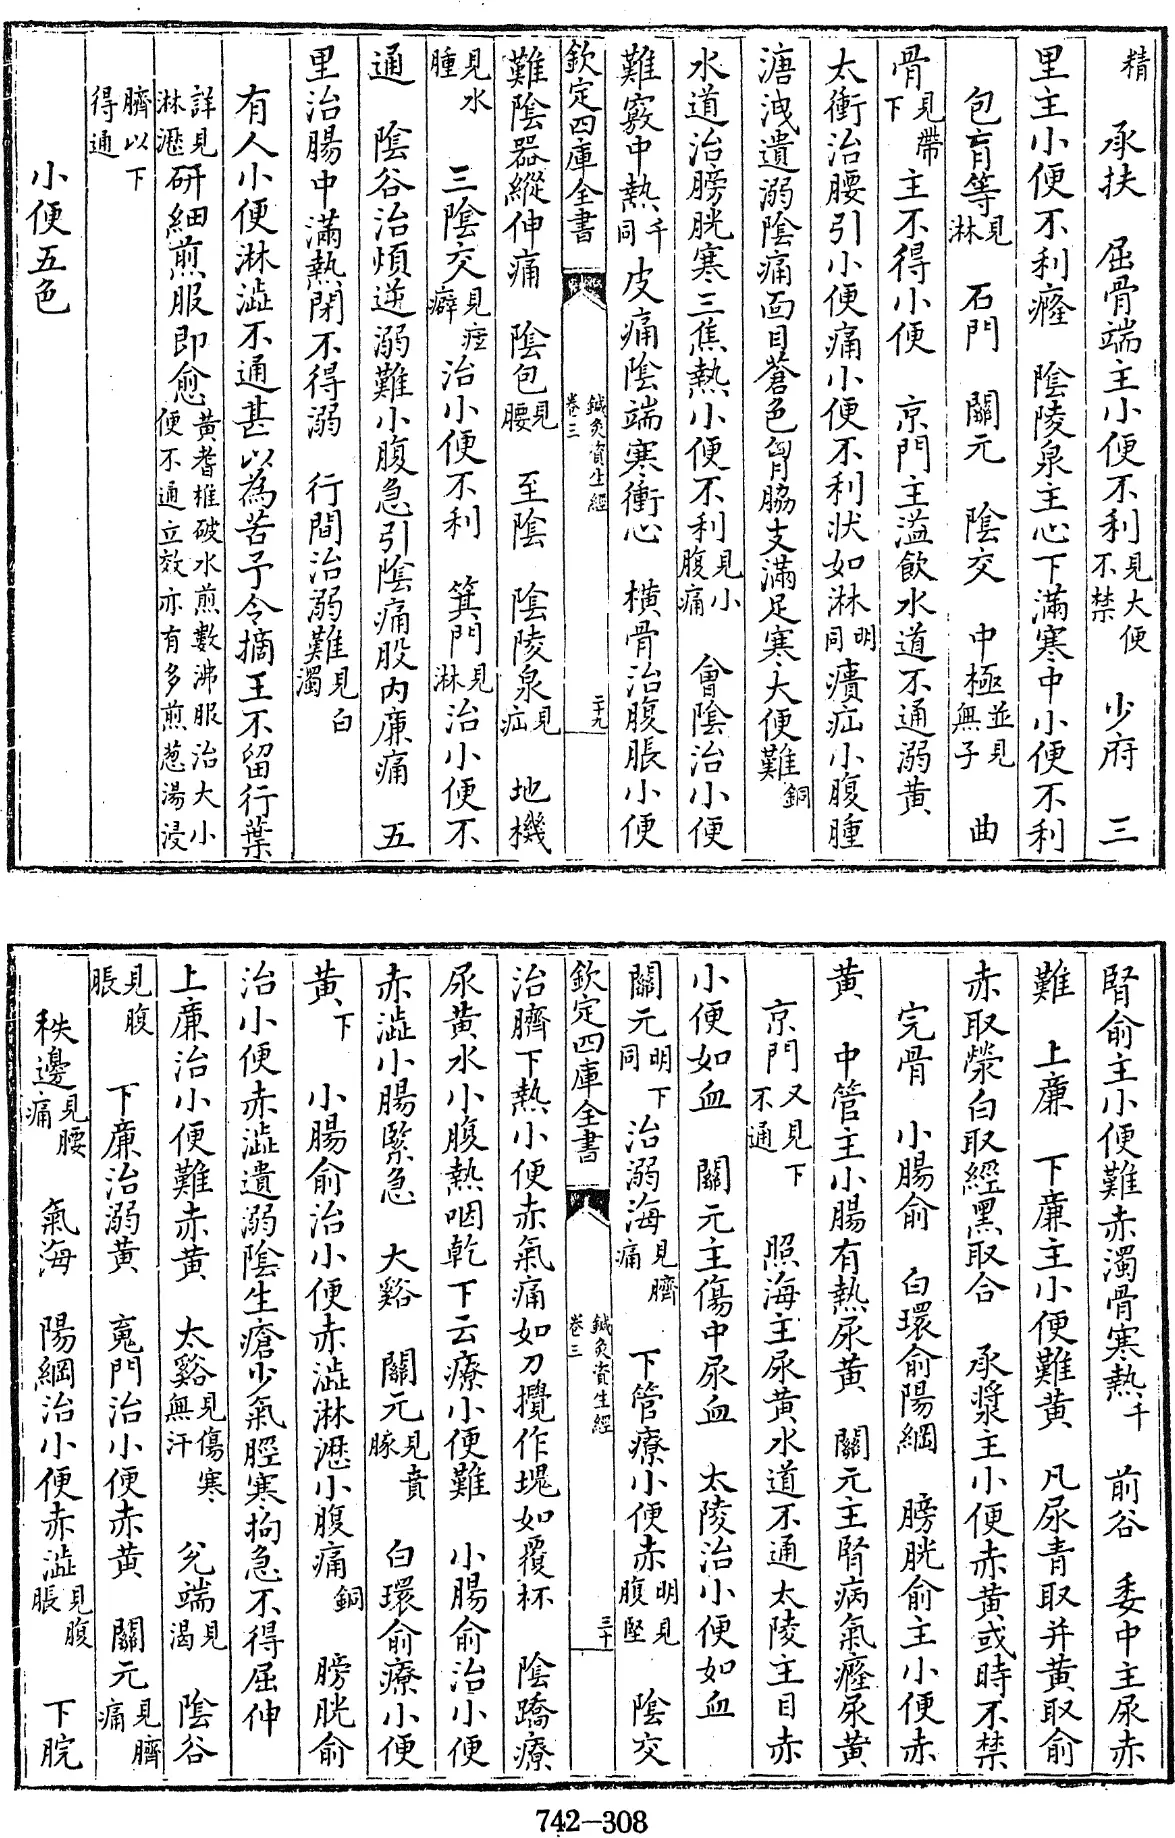 精　承扶　屈骨端主小便不利見大便不禁　少府　三
里主小便不利癃　陰陵泉主心下滿寒中小便不利
包肓等見淋　石門　關元　陰交　中極並見無子　曲
骨見帶下主不得小便　京門主溢飲水道不通溺黄
太衝治腰引小便痛小便不利狀如淋明同㿉疝小腹腫
溏洩遺溺陰痛面目蒼色胷脇支滿足寒大便難銅
水道治膀胱寒三焦熱小便不利見小腹痛　會陰治小便
難竅中熱千同皮痛陰端寒衝心　橫骨治腹脹小便
欽定四庫全書　鍼灸資生經卷三　二十九
難陰器縱伸痛　陰包見腰　至陰　陰陵泉見疝　地機
見水腫　三陰交見痃癖治小便不利　箕門見淋治小便不
通　陰谷治煩逆溺難小腹急引陰痛股内廉痛　五
里治腸中滿熱閉不得溺　行間治溺難見白濁
有人小便淋澁不通甚以為苦予令摘王不留行葉
詳見淋瀝研細煎服即愈黄耆椎破水煎數沸服治大小便不通立效亦有多煎葱湯浸
臍以下得通
小便五色
腎俞主小便難赤濁骨寒熱千　前谷　委中主尿赤
難　上廉　下廉主小便難黄　凡尿青取井黄取俞
赤取滎白取經黑取合　承漿主小便赤黄或時不禁
完骨　小腸俞　白環俞陽綱　膀胱俞主小便赤
黄　中管主小腸有熱尿黄　關元主腎病氣癃尿黄
京門又見下不通　照海主尿黄水道不通太陵主目赤
小便如血　關元主傷中尿血　太陵治小便如血
關元明下同治溺海見臍痛　下管療小便赤明見腹堅　陰交
欽定四庫全書　鍼灸資生經卷三　三十
治臍下熱小便赤氣痛如刀攪作塊如覆杯　陰蹻療
尿黄水小腹熱咽乾下云療小便難　小腸俞治小便
赤澁小腸緊急　大谿　關元見賁豚　白環俞療小便
黄下　小腸俞治小便赤澁淋瀝小腹痛銅　膀胱俞
治小便赤澁遺溺陰生瘡少氣脛寒拘急不得屈伸
上廉治小便難赤黄　太谿見傷寒無汗　兌端見渴　陰谷
見腹脹　下廉治溺黄　魂門治小便赤黄　關元見臍痛
秩邊見腰痛　氣海　陽綱治小便赤澁見腹脹　下脘
742-308